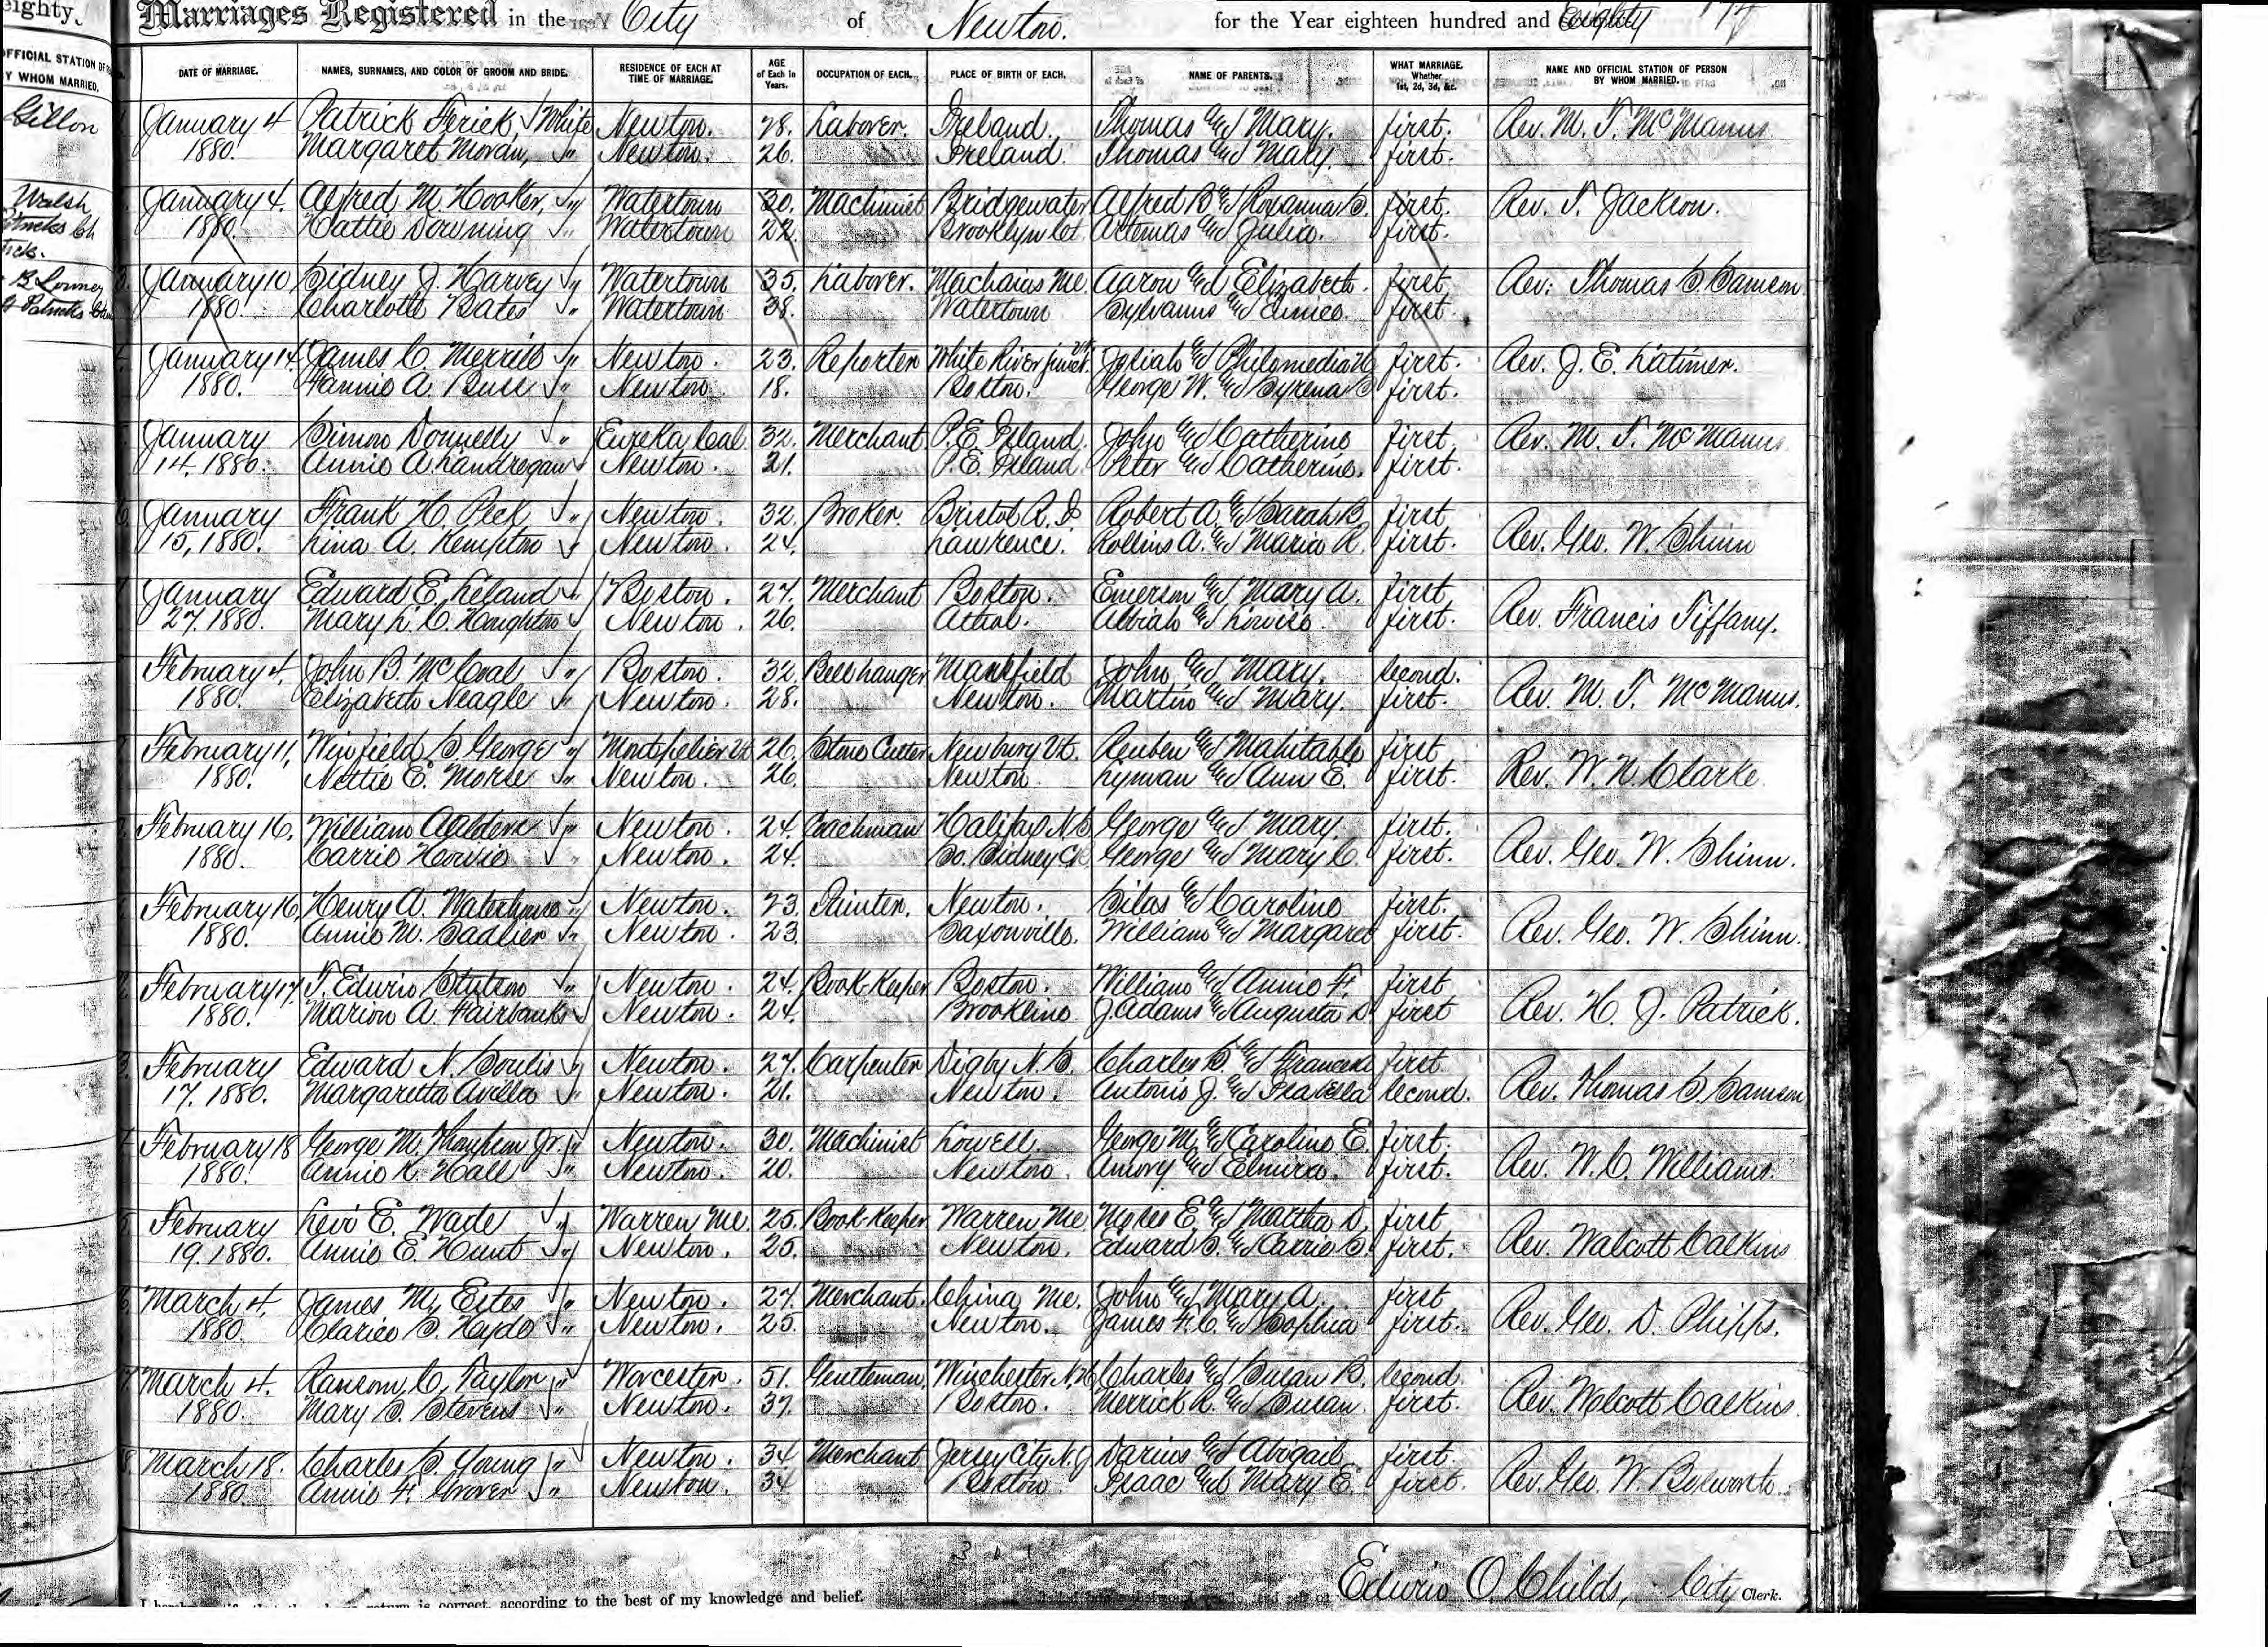 eighty.
OFFICIAL STATION OF
BY WHOM MARRIED.
Gillon
Walsh
Marriages Registered in the City of Newton. for the Year eighteen hundred and Eighty
DATE OF MARRIAGE. NAMES, SURNAMES, AND COLOR OF GROOM AND BRIDE. RESIDENCE OF EACH AT TIME OF MARRIAGE. AGE of Each in Years. OCCUPATION OF EACH. PLACE OF BIRTH OF EACH. NAME OF PARENTS. WHAT MARRIAGE. Whether 1st, 2d, 3d, &c. NAME AND OFFICIAL STATION OF PERSON BY WHOM MARRIED.
January 4 Patrick Ferick, White Newton. 28. Laborer. Ireland. Thomas and Mary. first. Rev. M. T. McManus
1880. Margaret Moran, " Newton. 26. Ireland. Thomas and Mary. first.
January 4. Alfred M. Hooker, " Watertown 30. Machinist Bridgewater Alfred B. and Roxanna S. first. Rev. S. Jackson.
1880. Hattie Downing " Watertown 22. Brooklyn Ct. Artemas and Julia. first.
January 10, Sidney J. Harvey " Watertown 35. Laborer. Machaias Me. Aaron and Elizabeth. first. Rev. Thomas S. Samson
1880. Charlotte Bates " Watertown 38. Watertown Sylvanus and Eunice. first.
January 14. James C. Merrill " Newton. 23. Reporter White River Junct. Vt. Josiah and Philomedia first. Rev. J. E. Latimer.
1880. Fannie A. Burr " Newton 18. Boston. George W. and Syrena S first.
January Simon Donnelly " Eureka Cal. 32. Merchant P. E. Island. John and Catherine first. Rev. M. T. McManus.
14, 1880. Annie A. Landregan Newton. 21. P. E. Island Peter and Catherine. first.
January Frank H. Peck " Newton. 32. Broker. Bristol R. I. Robert A. and Sarah B. first
15, 1880. Lina A. Kempton Newton. 24. Lawrence. Rollins A. and Maria R. first. Rev. Geo. W. Shinn
January Edward E. Leland " Boston. 27. Merchant Boston. Emerson and Mary A. first
27. 1880. Mary L. C. Houghton Newton. 26. Athol. Abiah and Louisa. first. Rev. Francis Tiffany.
February 4, John B. McCoal " Boston. 32. Bellhanger Mansfield John and Mary. second.
1880. Elizabeth Neagle " Newton. 28. Newton. Martin and Mary. first. Rev. M. T. McManus.
February 11, Winfield S George " Montpelier Vt 26. Stone Cutter Newbury Vt. Reuben and Mahitable first
1880. Nettie E. Morse " Newton. 26. Newton. Lyman and Ann E. first. Rev. W. N. Clarke
February 16, William Aalders " Newton. 24. Coachman Halifax N.S George and Mary. first.
1880. Carrie Howie " Newton. 24. So. Sidney C.B. George and Mary C. first. Rev. Geo. W. Shinn.
February 16, Henry A. Waterhouse " Newton. 23. Printer. Newton. Silas and Caroline first.
1880. Annie M. Sadlier " Newton. 23. Saxonville. William and Margaret first. Rev. Geo. W. Shinn.
February 17, T. Edwin Stutson " Newton. 24. Book-Keeper Boston. William and Annie F. first
1880. Marion A. Fairbanks Newton. 24. Brookline J. Adams and Augusta D first Rev. H. J. Patrick.
February Edward N. Soulis " Newton. 27. Carpenter Digby N. S. Charles S. and Frances first.
17. 1880. Margaretta Avilla " Newton. 21. Newton. Antonio J. and Isabella second. Rev. Thomas S. Samson
February 18 George M. Thompson Jr. " Newton. 30. Machinist Lowell. George M. and Caroline E. first.
1880. Annie K. Hall " Newton. 20. Newton. Amory and Elmira. first. Rev. W. C. Williams.
February Levi E. Wade " Warren Me. 25. Book-Keeper Warren Me. Moses E. and Martha D. first
19. 1880. Annie E. Hunt " Newton. 25. Newton. Edward S. and Carrie S first. Rev. Walcott Calkins
March 4. James M. Estes " Newton. 27. Merchant. China Me. John and Mary A. first
1880. Clarice S. Hyde " Newton. 25. Newton. James F. C. and Sophia first. Rev. Geo. D. Phipps.
March 4. Ransom C. Taylor " Worcester. 51. Gentleman Winchester N.H. Charles and Susan B. second
1880. Mary S. Stevens " Newton. 37. Boston. Merrick R. and Susan first. Rev. Wolcott Calkins.
March 18. Charles S. Young " Newton. 34 Merchant Jersey City N. J Darius and Abigail first.
1880. Annie F. Grover " Newton. 34 Boston Isaac and Mary E. first. Rev. Geo. W. Bosworth.
return is correct, according to the best of my knowledge and belief. Edwin O. Childs, City Clerk.